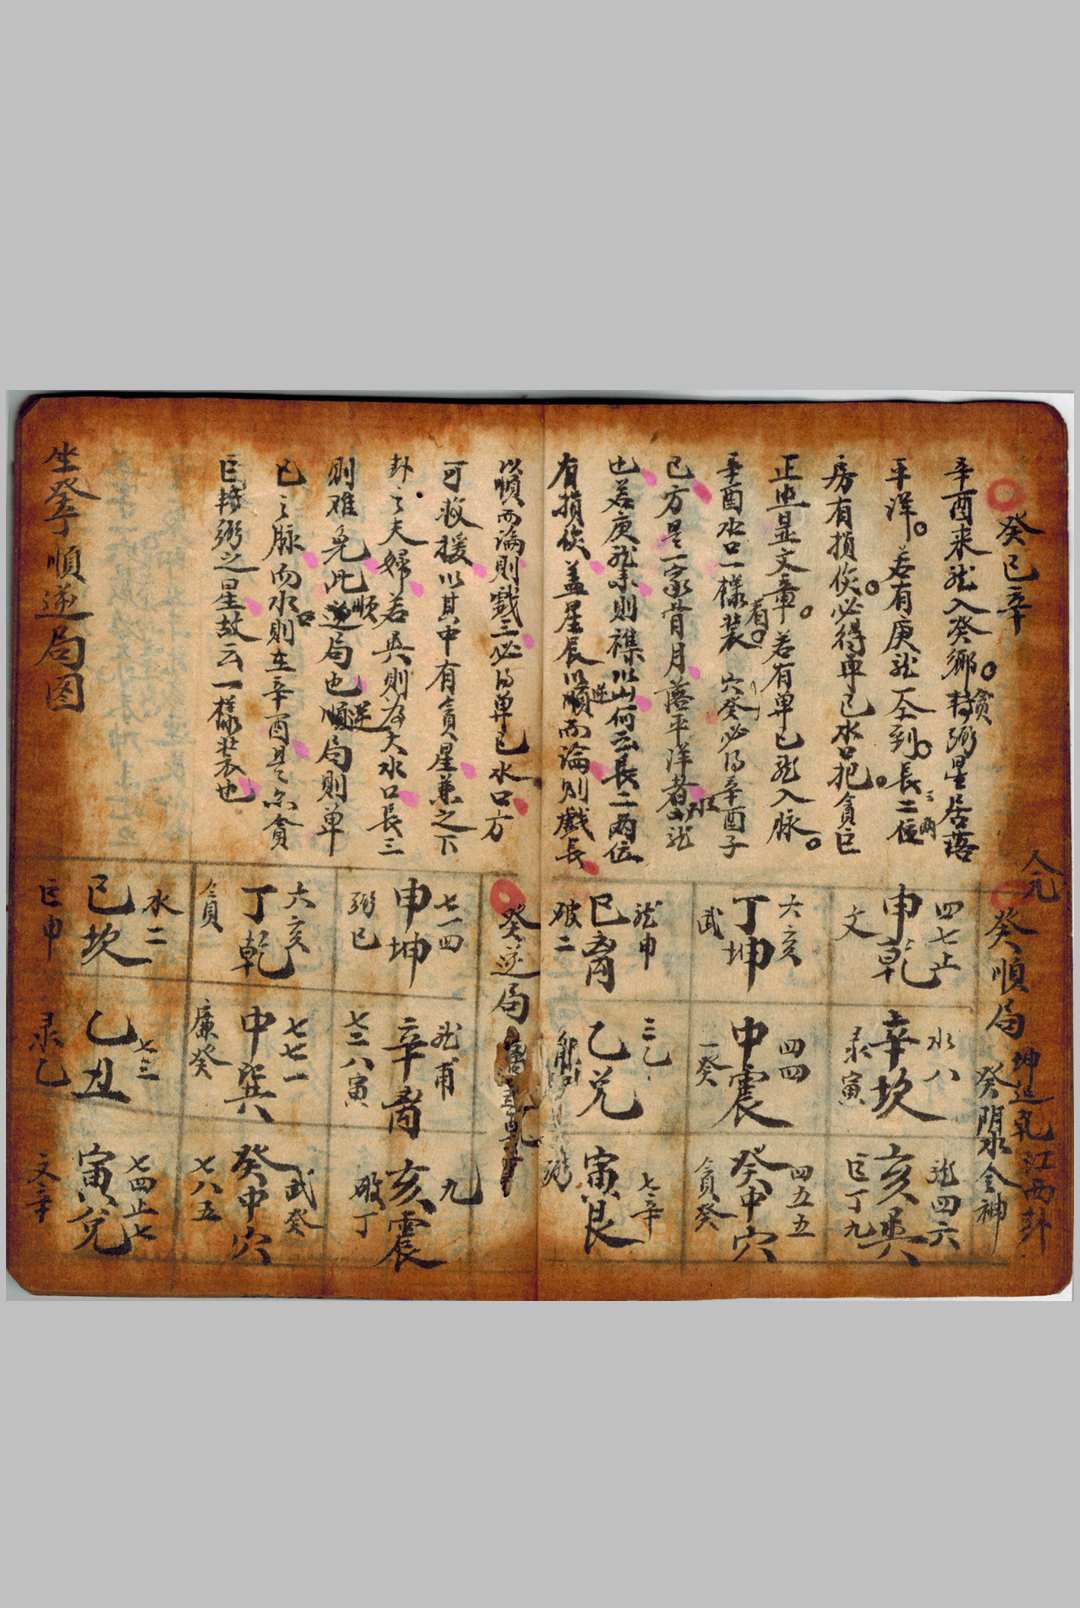 癸巳辛
辛酉来龙入癸鄉貪輔弼星居落
平洋若有庚龙仝到長二位
房有損傷必得单巳水口把貪巨
正照显文章若有单巳龙入脉
辛酉水口一様装看穴癸必得辛酉子
巳方是一家骨月落平洋者龙
也若庚龙来則襍以山何云長二两位
有損傷盖星辰以順逆而論則戲長
以順而論則戲三必得单巳水口方
可救援以其中有貪星兼之下
卦之夫婦若巽則為大水口長三
則难免此逆順局也順逆局則单
巳之脉而水口則在辛酉是亦貪
巨輔弼之星故云一様装也
坐癸丁順逆局図
人元
癸順局
癸関水会神
坤起乾江西卦
四七止
申乾
文
水八
辛坎
录寅
龙四六
亥巽
巨丁九
六亥
丁坤
武
四四
中震
一癸
四五五
癸中穴
貪癸
龙申
巳离
破二
三乙
乙兌
七辛
寅艮
弼
癸逆局
七一四
申坤
弼巳
龙甫
辛离
七二八寅
九
亥震
破丁
六亥
丁乾
貪
七七一
中巽
廉癸
武癸
癸中穴
七八五
水二
巳坎
巨申
七三
乙丑
录乙
七四止七
寅兌
文辛